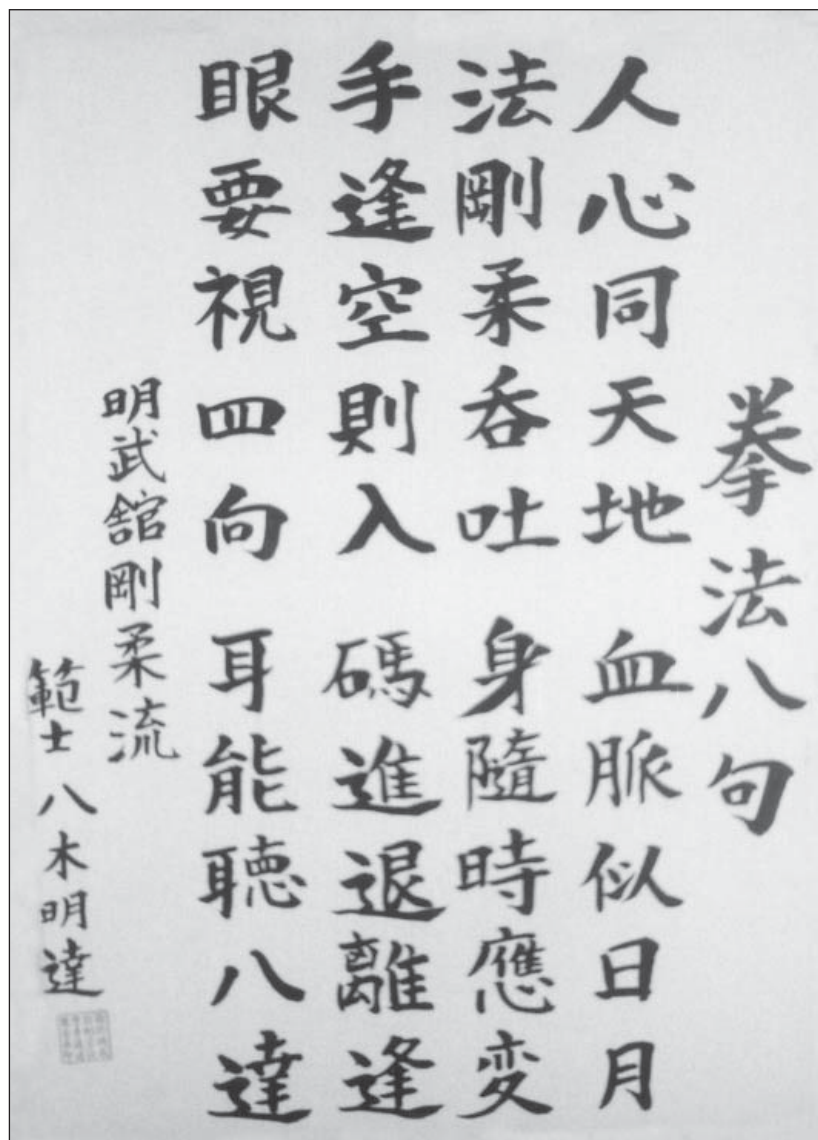 拳法八句
人心同天地 血脈似日月
法剛柔吞吐 身隨時應変
手逢空則入 碼進退離逢
眼要視四向 耳能聴八達
明武舘剛柔流
範士 八木明達